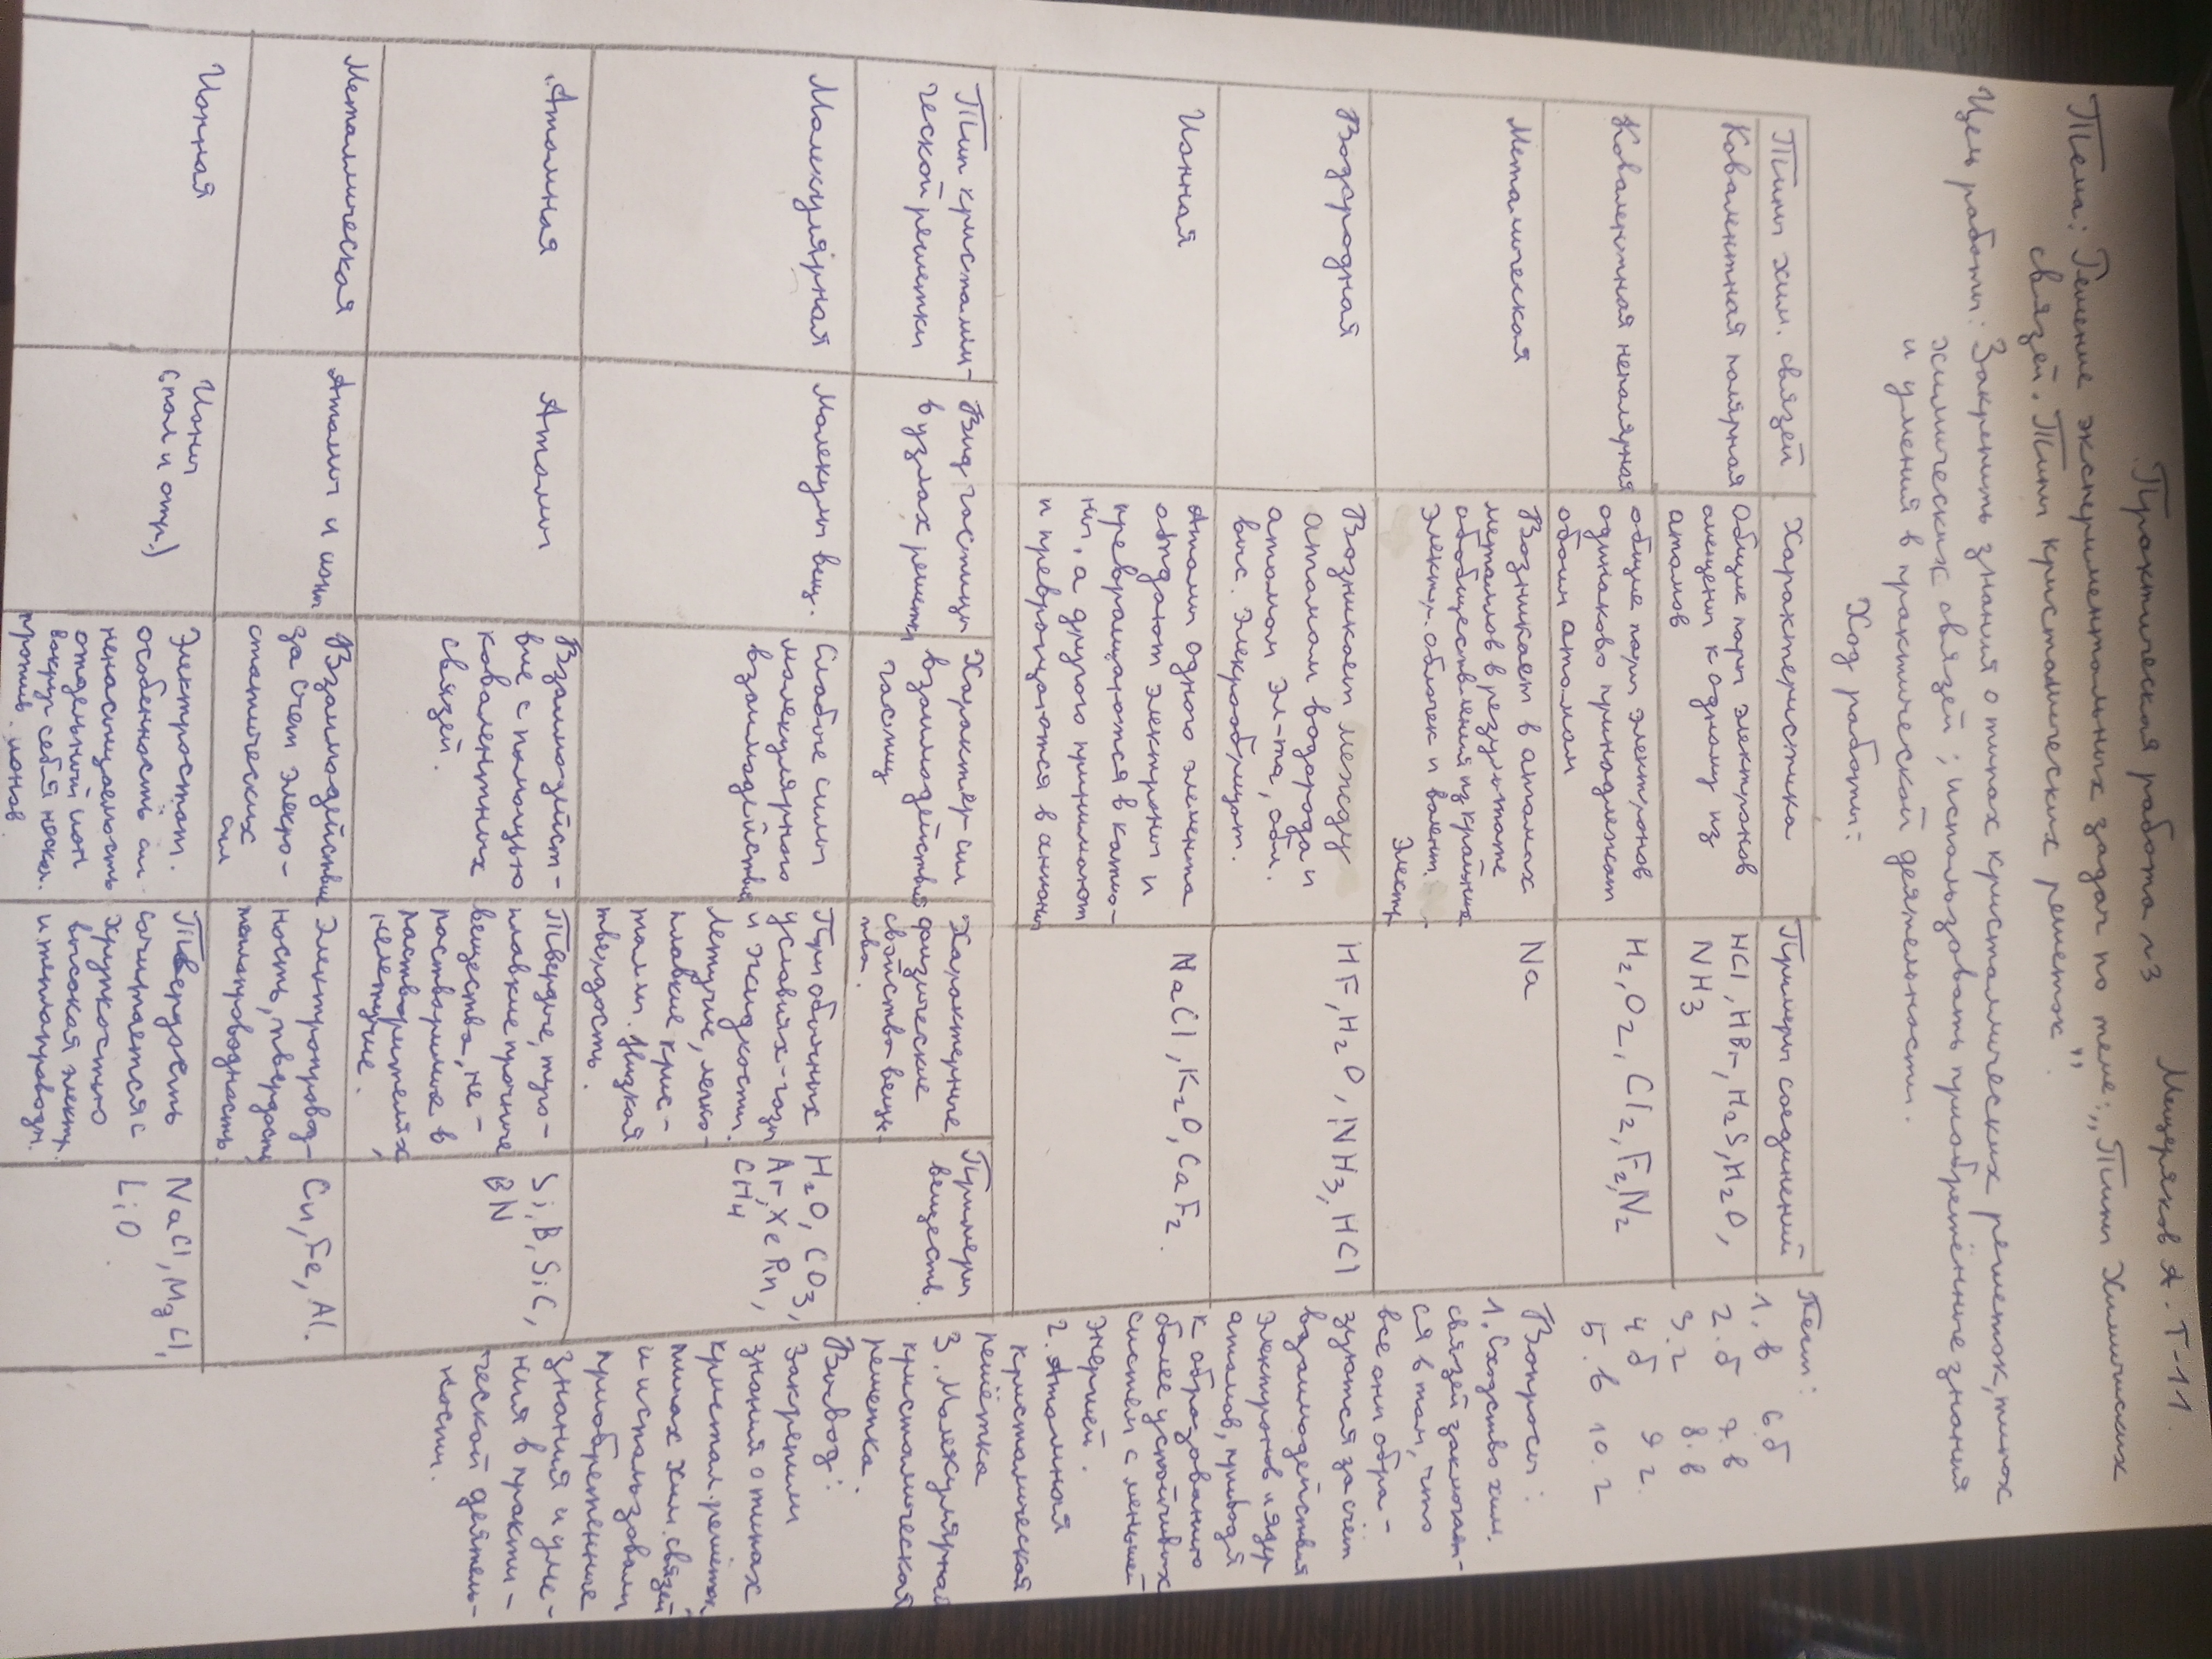 Практическая работа №3 Мещеряков А. Т-11.
Тема: Решение экспериментальных задач по теме: „Типы химических
связей. Типы кристаллических решеток".
Цель работы: Закрепить знания о типах кристаллических решеток, типах
химических связей; использовать приобретённые знания
и умений в практической деятельности.
Ход работы:
Типы хим. связей
Характеристика
Примеры соединений
Ковалентная полярная
общие пары электронов
смещены к одному из
атомов
HCl, HBr, H2S, H2O,
NH3
Ковалентная неполярная
общие пары электронов
одинаково принадлежат
обоим атомам
H2, O2, Cl2, F2, N2
Металическая
Возникает в атомах
металлов в результате
обобществления из крайних
электр. оболочек и валент.
электр
Na
Водородная
Возникает между
атомом водорода и
атомом эл-та, обл.
выс. элекроотрицат.
HF, H2O, NH3, HCl
Ионная
Атомы одного элемента
отдают электроны и
превращаются в катио-
ны, а другого принимают
и превращаются в анионы
NaCl, K2O, CaF2.
Тип кристалли-
ческой решетки
Вид частицы
в узлах решетки
Характер сил
взаимодействия
частиц
Характерные
физические
свойства вещес-
тва.
Примеры
веществ.
Молекулярная
Молекулы вещ.
Слабые силы
молекулярного
взаимодействия
При обычных
условиях-газы
и жидкости.
Летучие, легко-
плавкие крис-
таллы. Низкая
твердость.
H2O, CO3,
Ar, Xe Rn,
CH4
Атомная
Атомы
Взаимодейст-
вие с помощью
ковалентных
связей.
Твердые, туго-
плавкие прочные
вещества, не-
растворимые в
растворителях,
нелетучие.
Si, B, SiC,
BN
Металлическая
Атомы и ионы
Взаимодействие
за счет элекро-
статических
сил
Электропровод-
ность, твердость,
теплопроводность.
Cu, Fe, Al.
Ионная
Ионы
(пол и отр.)
Электростат.
особенность си.
ненасыщаемость
отдельный ион
вокруг себя нескол.
против. ионов.
Твердость
сочитается с
хрупкостью
высокая электр.
и теплопроводн.
NaCl, MgCl,
LiO
Тест:
1. в 6.б
2. б 7. в
3. г 8. в
4 б 9 г.
5. в 10. г
Вопросы:
1. Сходство хим.
связей заключает-
ся в том, что
все они обра-
зуются за счёт
взаимодействия
электронов и ядер
атомов, приводя
к образованию
более устойчивых
систем с меньшей
энергией.
2. Атомная
кристалическая
решётка
3. Молекулярная
кристаллическая
решетка.
Вывод:
Закрепили
знания о типах
кристал. решёток,
типах хим. связей
и использовали
приобретенные
знания и уме-
ния в практи-
ческой деятель-
ности.